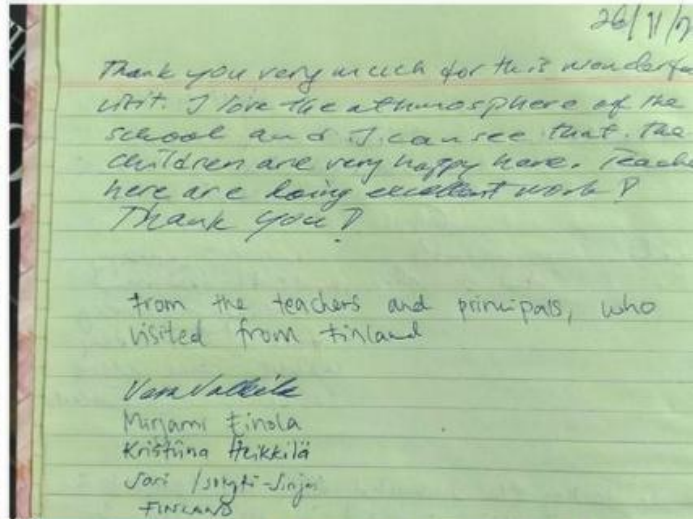 26/11/
Thank you very much for this
visit. I love the athmosphere of the
school and I can see that the
children are very happy here.
here are doing excellent work!
Thank you!
from the teachers and principals, who
visited from Finland
Mirjami Einola
Kristiina Heikkilä
Sari
FINLAND